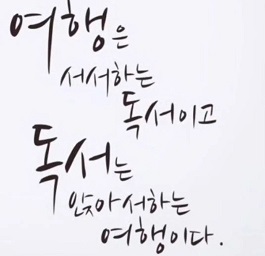 여행은
서서하는
독서이고
독서는
앉아서하는
여행이다.